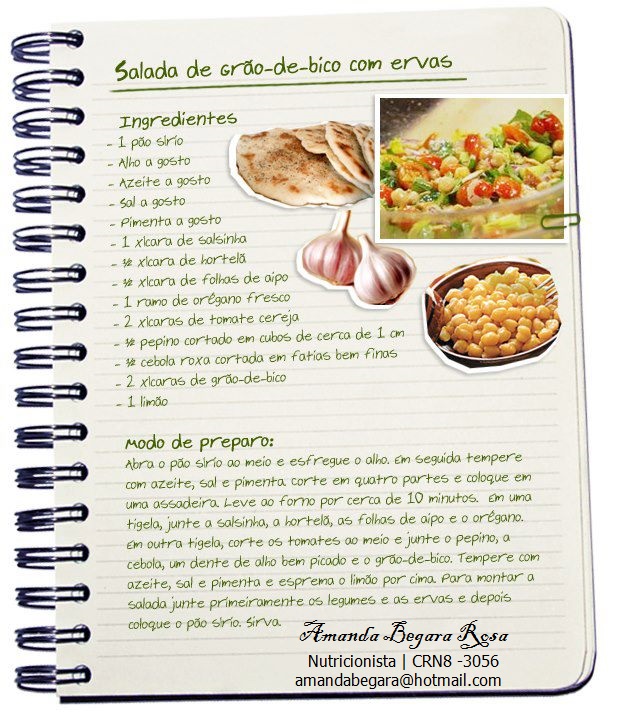 Salada de grão-de-bico com ervas
Ingredientes
- 1 pão sírio
- Alho a gosto
- Azeite a gosto
- Sal a gosto
- Pimenta a gosto
- 1 xícara de salsinha
- ½ xícara de hortelã
- ½ xícara de folhas de aipo
- 1 ramo de orégano fresco
- 2 xícaras de tomate cereja
- ½ pepino cortado em cubos de cerca de 1 cm
- ½ cebola roxa cortada em fatias bem finas
- 2 xícaras de grão-de-bico
- 1 limão
Modo de preparo:
Abra o pão sírio ao meio e esfregue o alho. Em seguida tempere
com azeite, sal e pimenta. corte em quatro partes e coloque em
uma assadeira. Leve ao forno por cerca de 10 minutos. Em uma
tigela, junte a salsinha, a hortelã, as folhas de aipo e o orégano.
Em outra tigela, corte os tomates ao meio e junte o pepino, a
cebola, um dente de alho bem picado e o grão-de-bico. Tempere com
azeite, sal e pimenta e esprema o limão por cima. Para montar a
salada junte primeiramente os legumes e as ervas e depois
coloque o pão sírio. Sirva.
Amanda Begara Rosa
Nutricionista | CRN8 -3056
amandabegara@hotmail.com